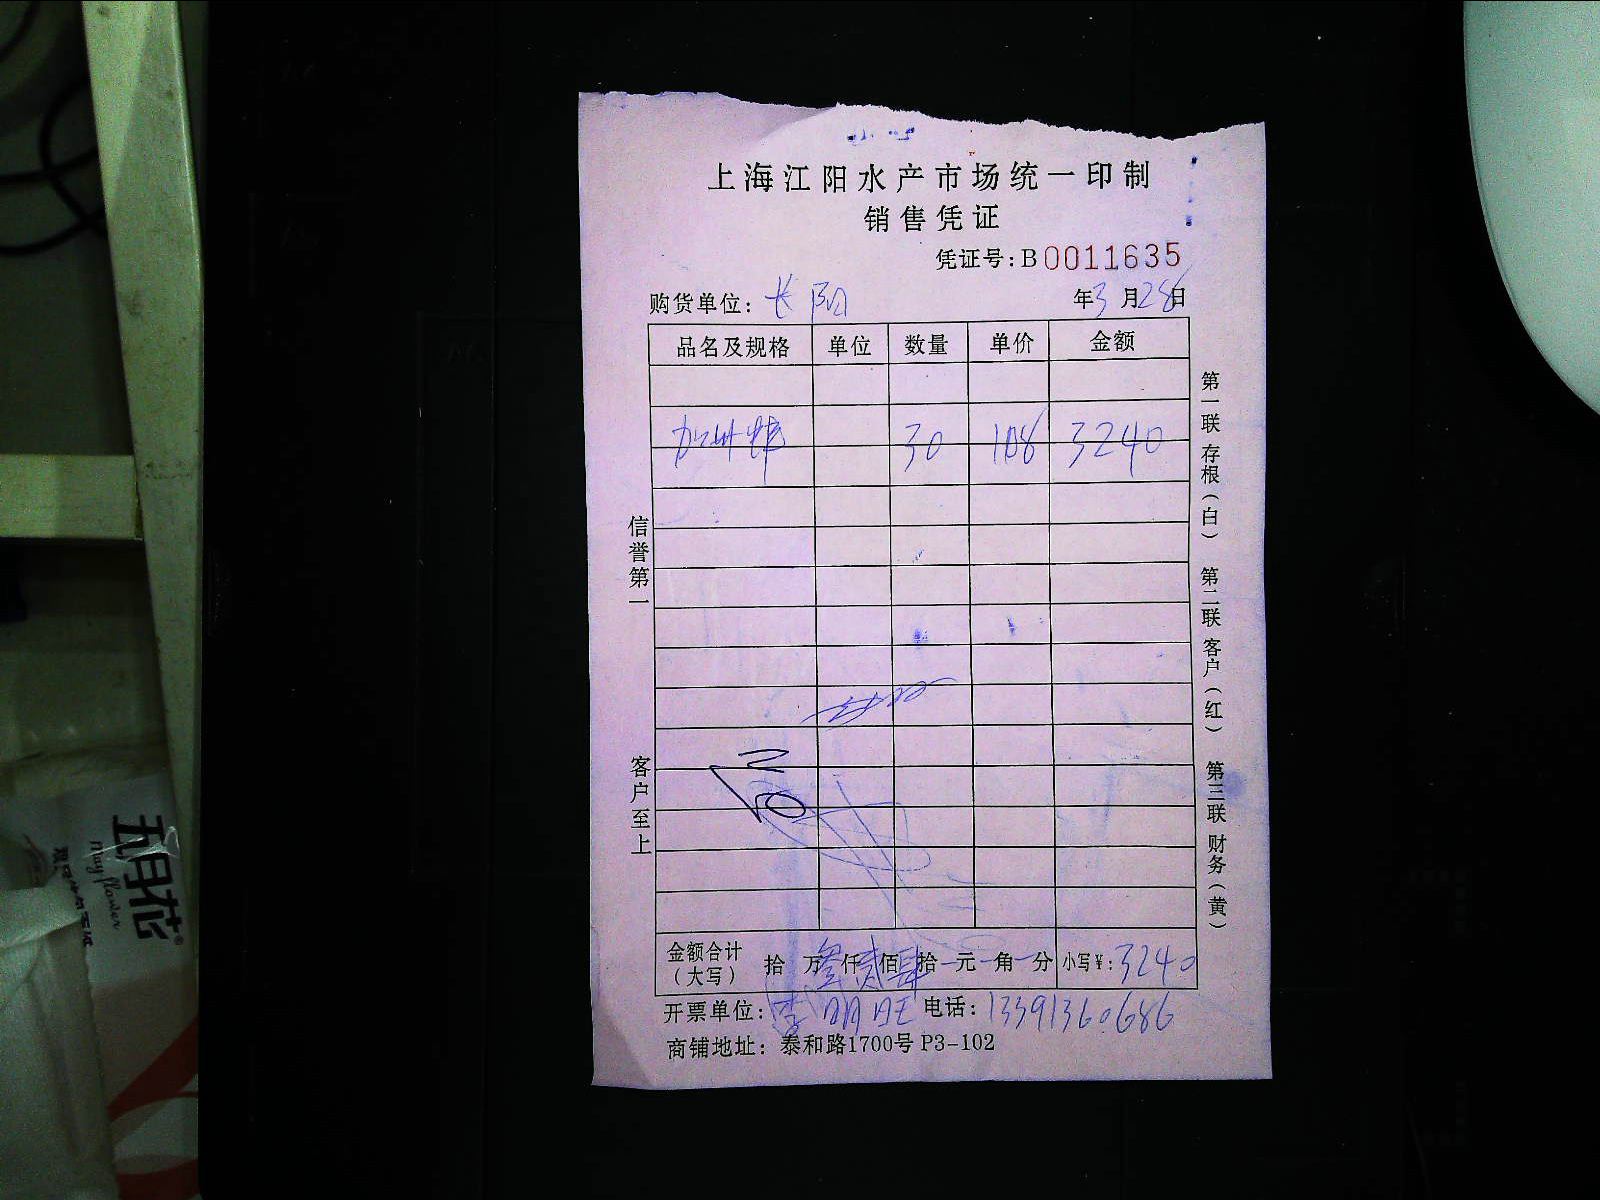 上海江阳水产市场统一印制
销售凭证
凭证号:B0011635
购货单位: 长阳 年3月28日
品名及规格 单位 数量 单价 金额
加州鲈 30 108 3240
信誉第一
客户至上
第一联 存根(白) 第二联 客户(红) 第三联 财务(黄)
金额合计(大写) 拾 万叁仟贰佰肆拾 元 角 分 小写¥:3240
开票单位: 李明旺 电话: 13391360686
商铺地址: 泰和路1700号 P3-102
五月花
May flower